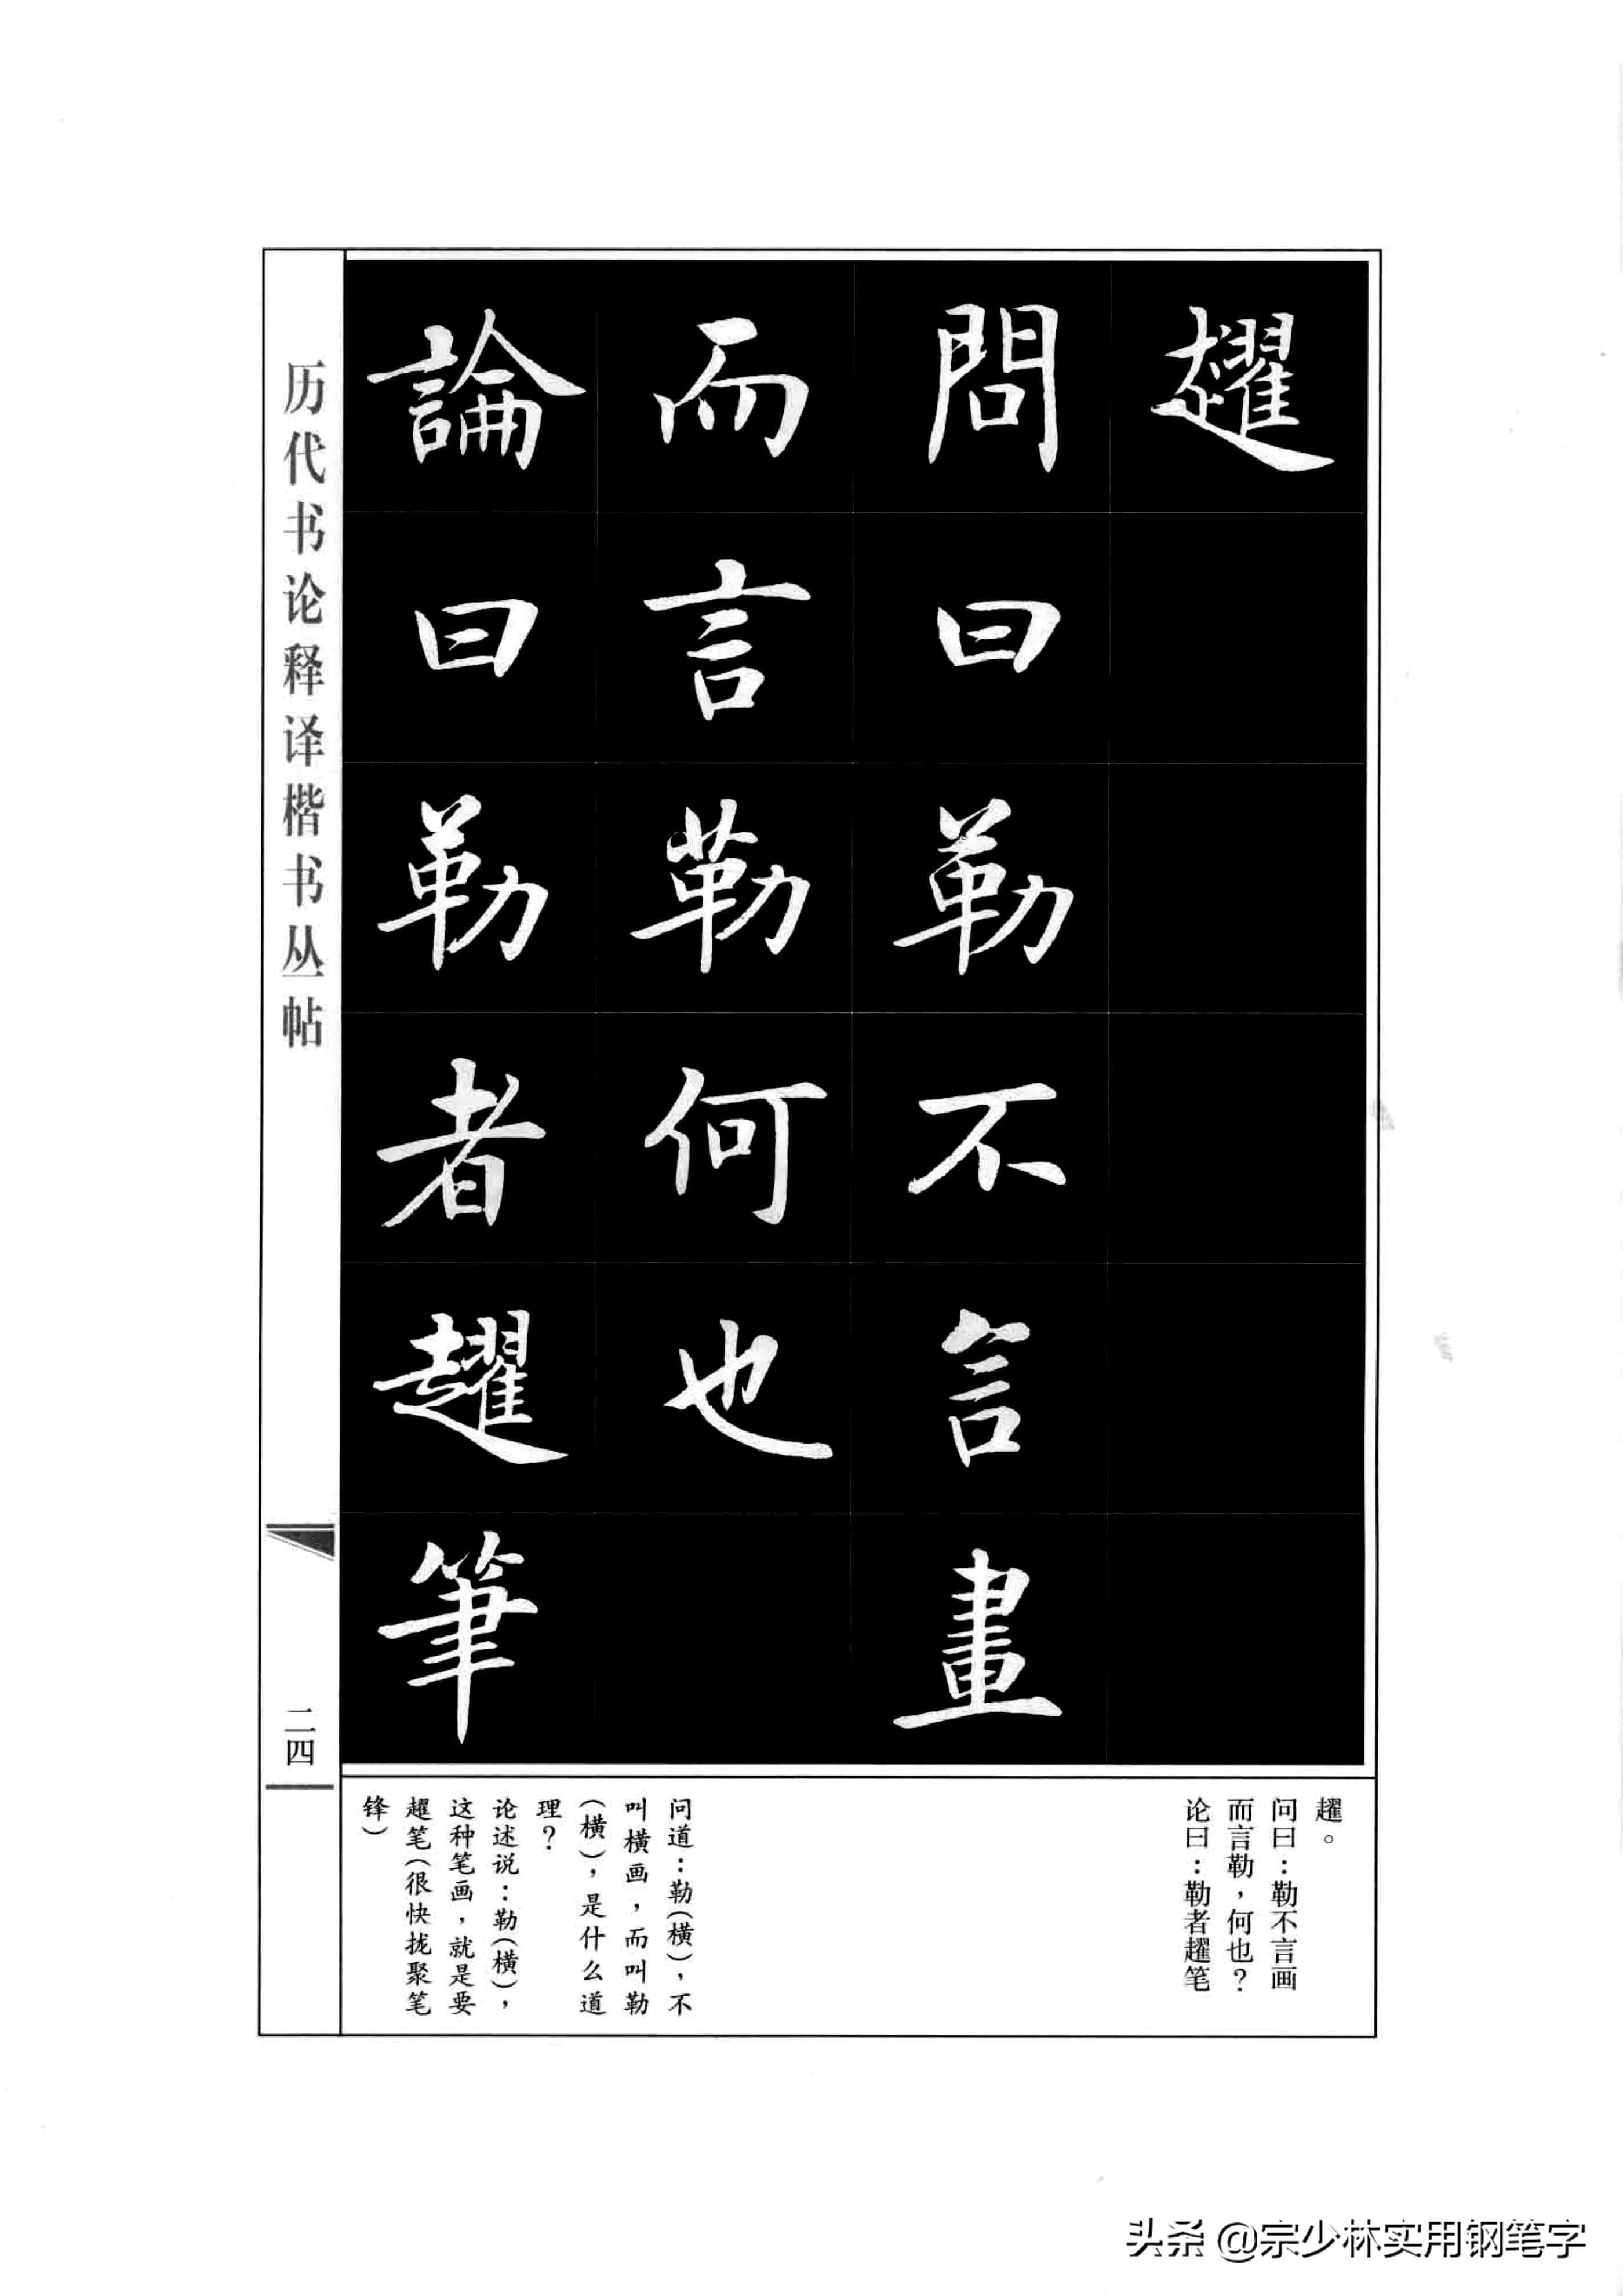 趯
問曰勒不言畫
而言勒何也
論曰勒者趯筆
历代书论释译楷书丛帖
二四
趯。
问曰：勒不言画
而言勒，何也？
论曰：勒者趯笔
问道：勒（横），不
叫横画，而叫勒
（横），是什么道
理？
论述说：勒（横），
这种笔画，就是要
趯笔（很快拢聚笔
锋）
头条 @宗少林实用钢笔字